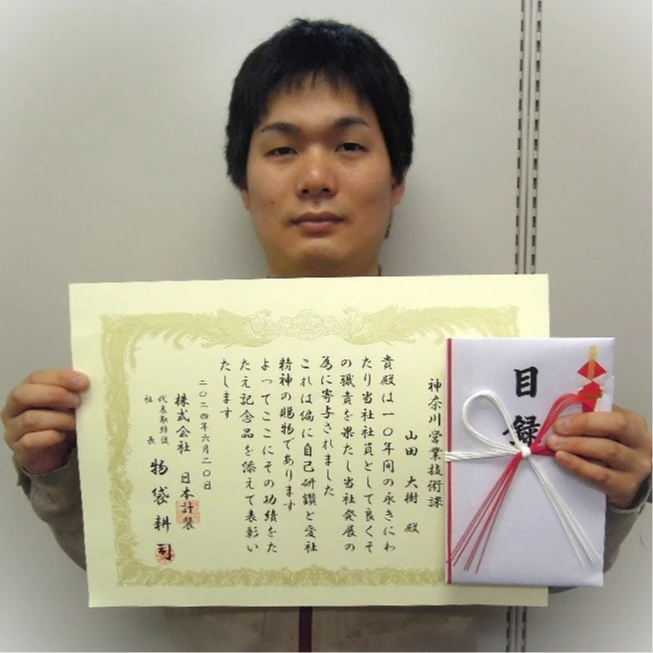 神奈川営業技術課
山田 大樹 殿
貴殿は一〇年間の永きにわ
たり当社社員として良くそ
の職責を果たし当社発展の
為に寄与されました
これは偏に自己研鑽と愛社
精神の賜物であります
よってここにその功績をた
たえ記念品を添えて表彰い
たします
二〇二四年六月二〇日
株式会社 日本計装
代表取締役
社長
物袋 耕司
目録